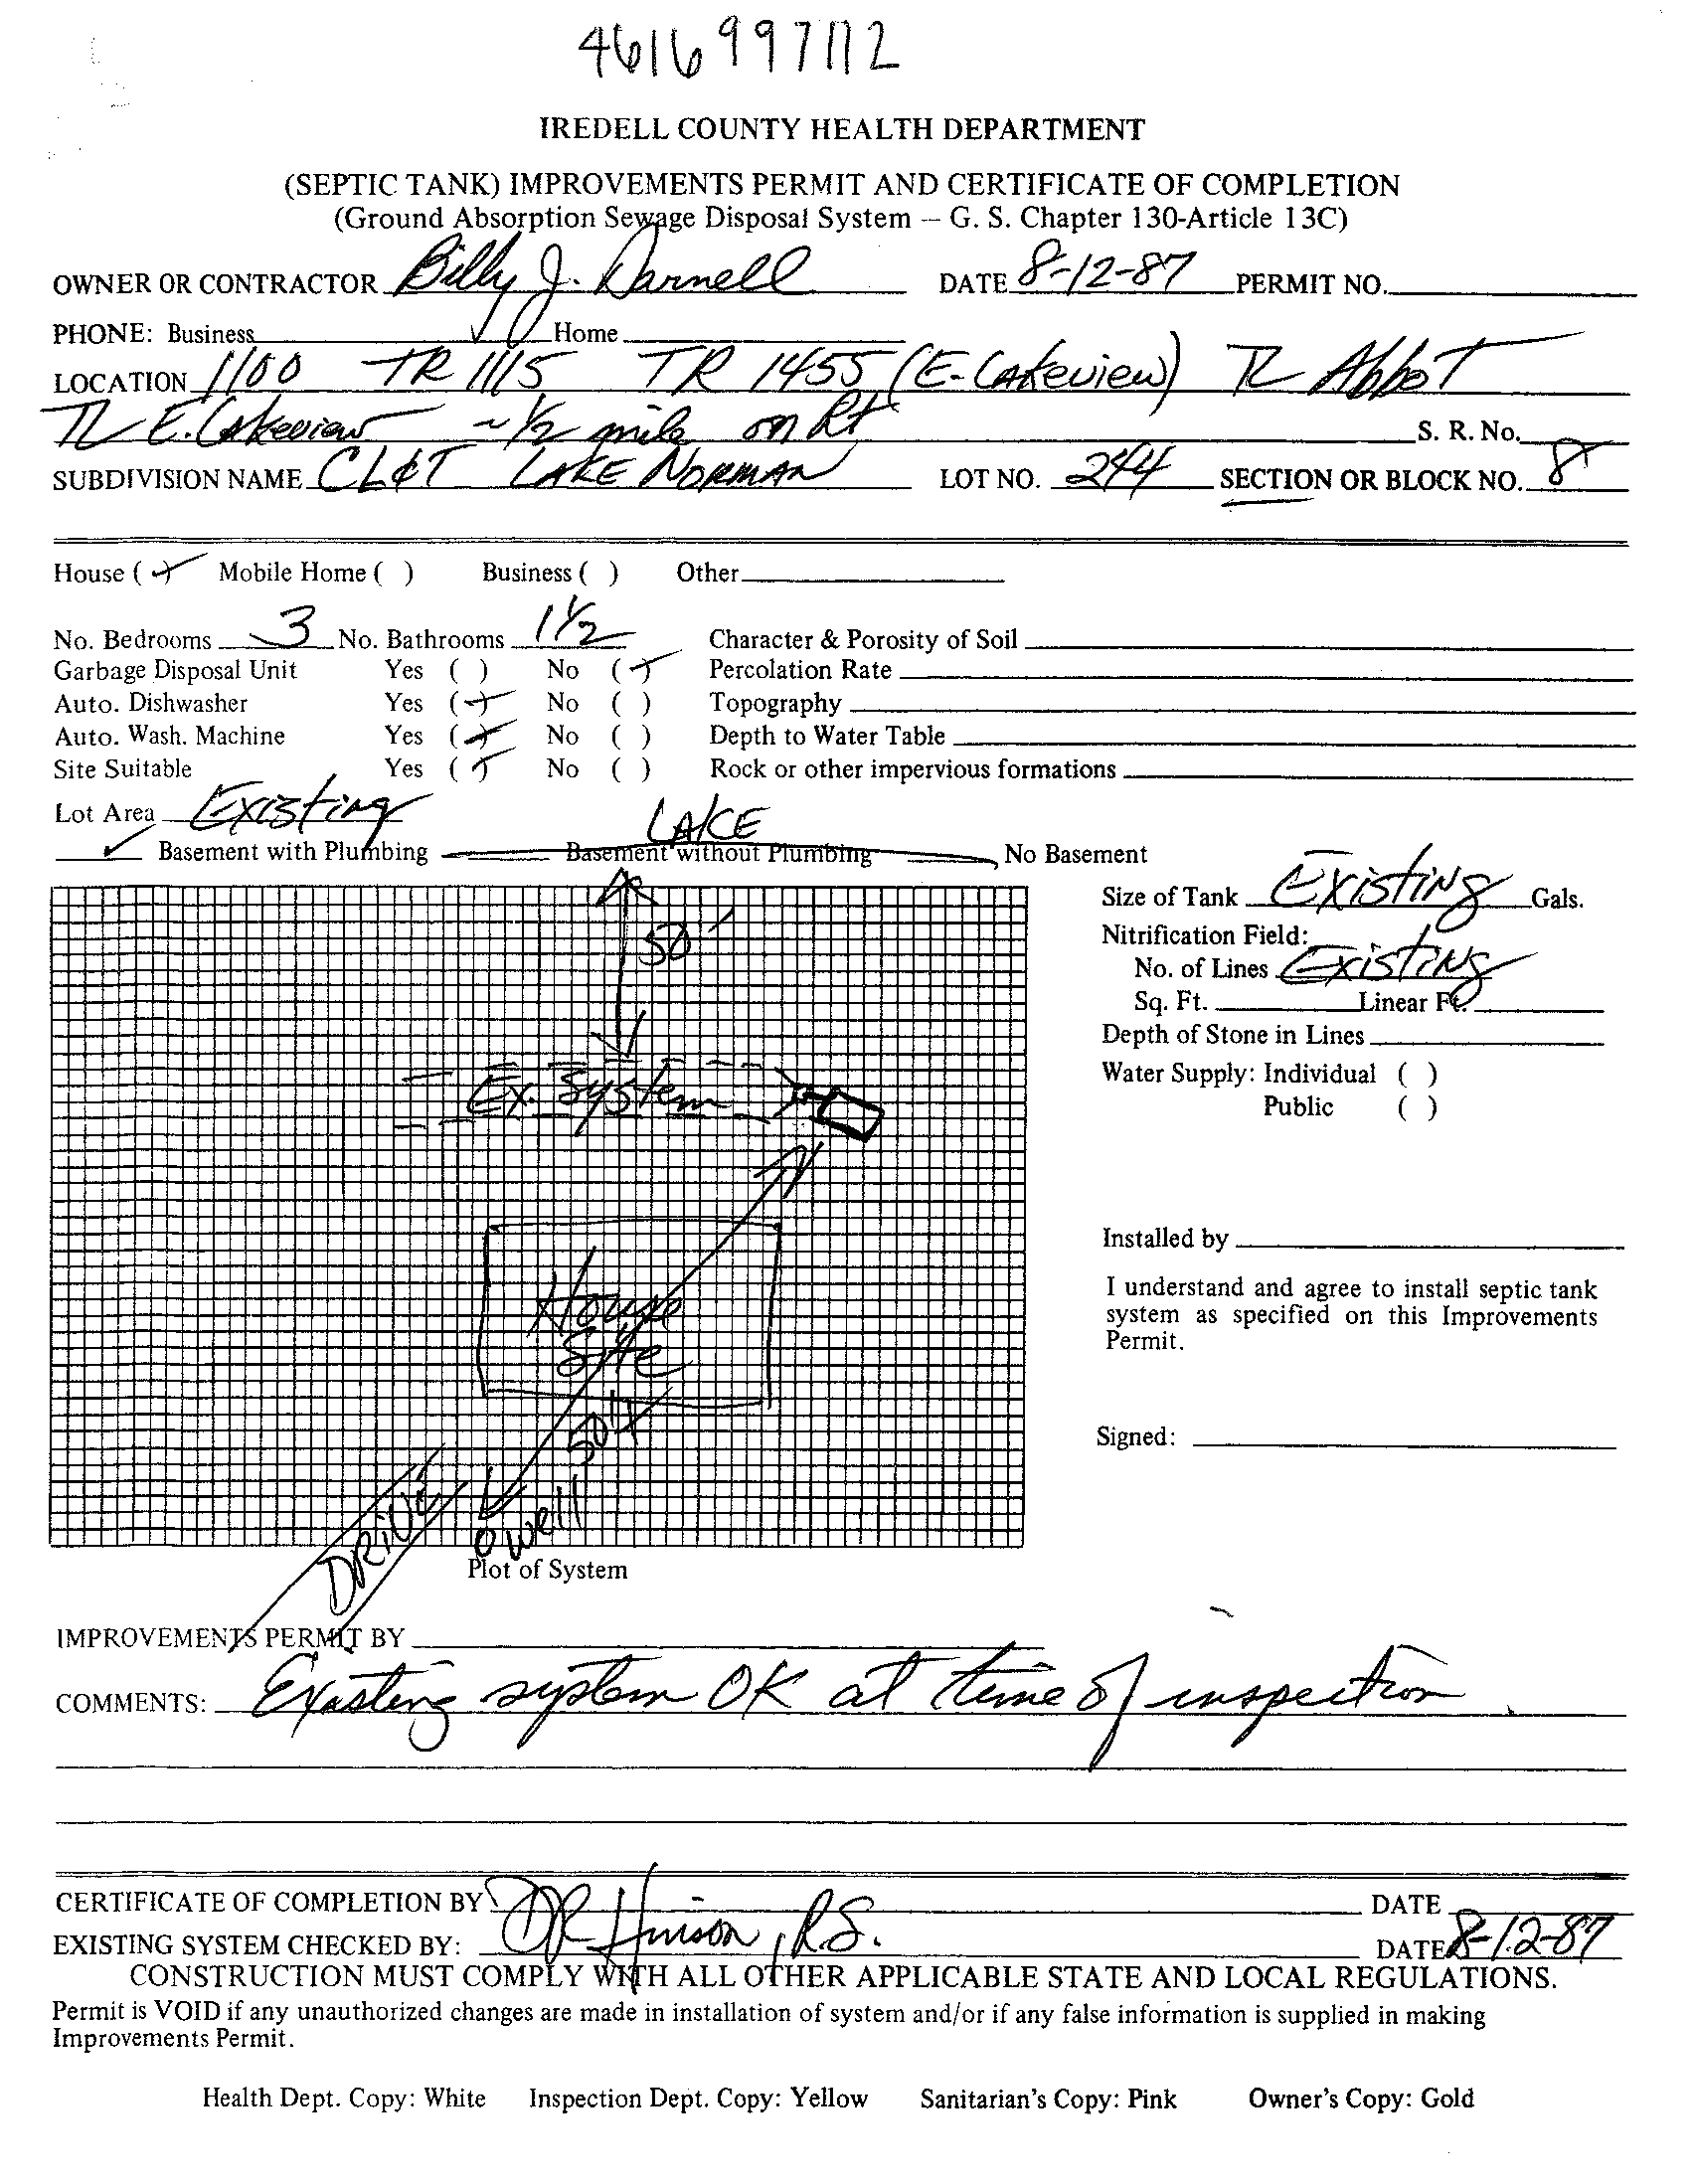 4616997112
IREDELL COUNTY HEALTH DEPARTMENT
(SEPTIC TANK) IMPROVEMENTS PERMIT AND CERTIFICATE OF COMPLETION
(Ground Absorption Sewage Disposal System – G. S. Chapter 130-Article 13C)
OWNER OR CONTRACTOR Billy J. Darnell DATE 8-12-87 PERMIT NO.
PHONE: Business Home
LOCATION 1100 TR 1115 TR 1455 (E-Lakeview) TL Abbot
TL E. Lakeview ~ 1/2 mile on Rt S. R. No.
SUBDIVISION NAME CL&T LAKE NORMAN LOT NO. 244 SECTION OR BLOCK NO. 8
House ( ✓ ) Mobile Home ( ) Business ( ) Other
No. Bedrooms 3 No. Bathrooms 1 1/2 Character & Porosity of Soil
Garbage Disposal Unit Yes ( ) No ( ✓ ) Percolation Rate
Auto. Dishwasher Yes ( ✓ ) No ( ) Topography
Auto. Wash. Machine Yes ( ✓ ) No ( ) Depth to Water Table
Site Suitable Yes ( ✓ ) No ( ) Rock or other impervious formations
Lot Area Existing LAKE
✓ Basement with Plumbing Basement without Plumbing No Basement
Size of Tank Existing Gals.
50'
Nitrification Field:
No. of Lines Existing
Sq. Ft. Linear Ft.
Depth of Stone in Lines
Ex. System
Water Supply: Individual ( )
Public ( )
Installed by
I understand and agree to install septic tank
system as specified on this Improvements
Permit.
House
Site
50'+
Signed:
DRIVE
Well
Plot of System
IMPROVEMENTS PERMIT BY
COMMENTS: Existing system OK at time of inspection
CERTIFICATE OF COMPLETION BY DATE
EXISTING SYSTEM CHECKED BY: DR Hinson, R.S. DATE 8-12-87
CONSTRUCTION MUST COMPLY WITH ALL OTHER APPLICABLE STATE AND LOCAL REGULATIONS.
Permit is VOID if any unauthorized changes are made in installation of system and/or if any false information is supplied in making
Improvements Permit.
Health Dept. Copy: White Inspection Dept. Copy: Yellow Sanitarian's Copy: Pink Owner's Copy: Gold